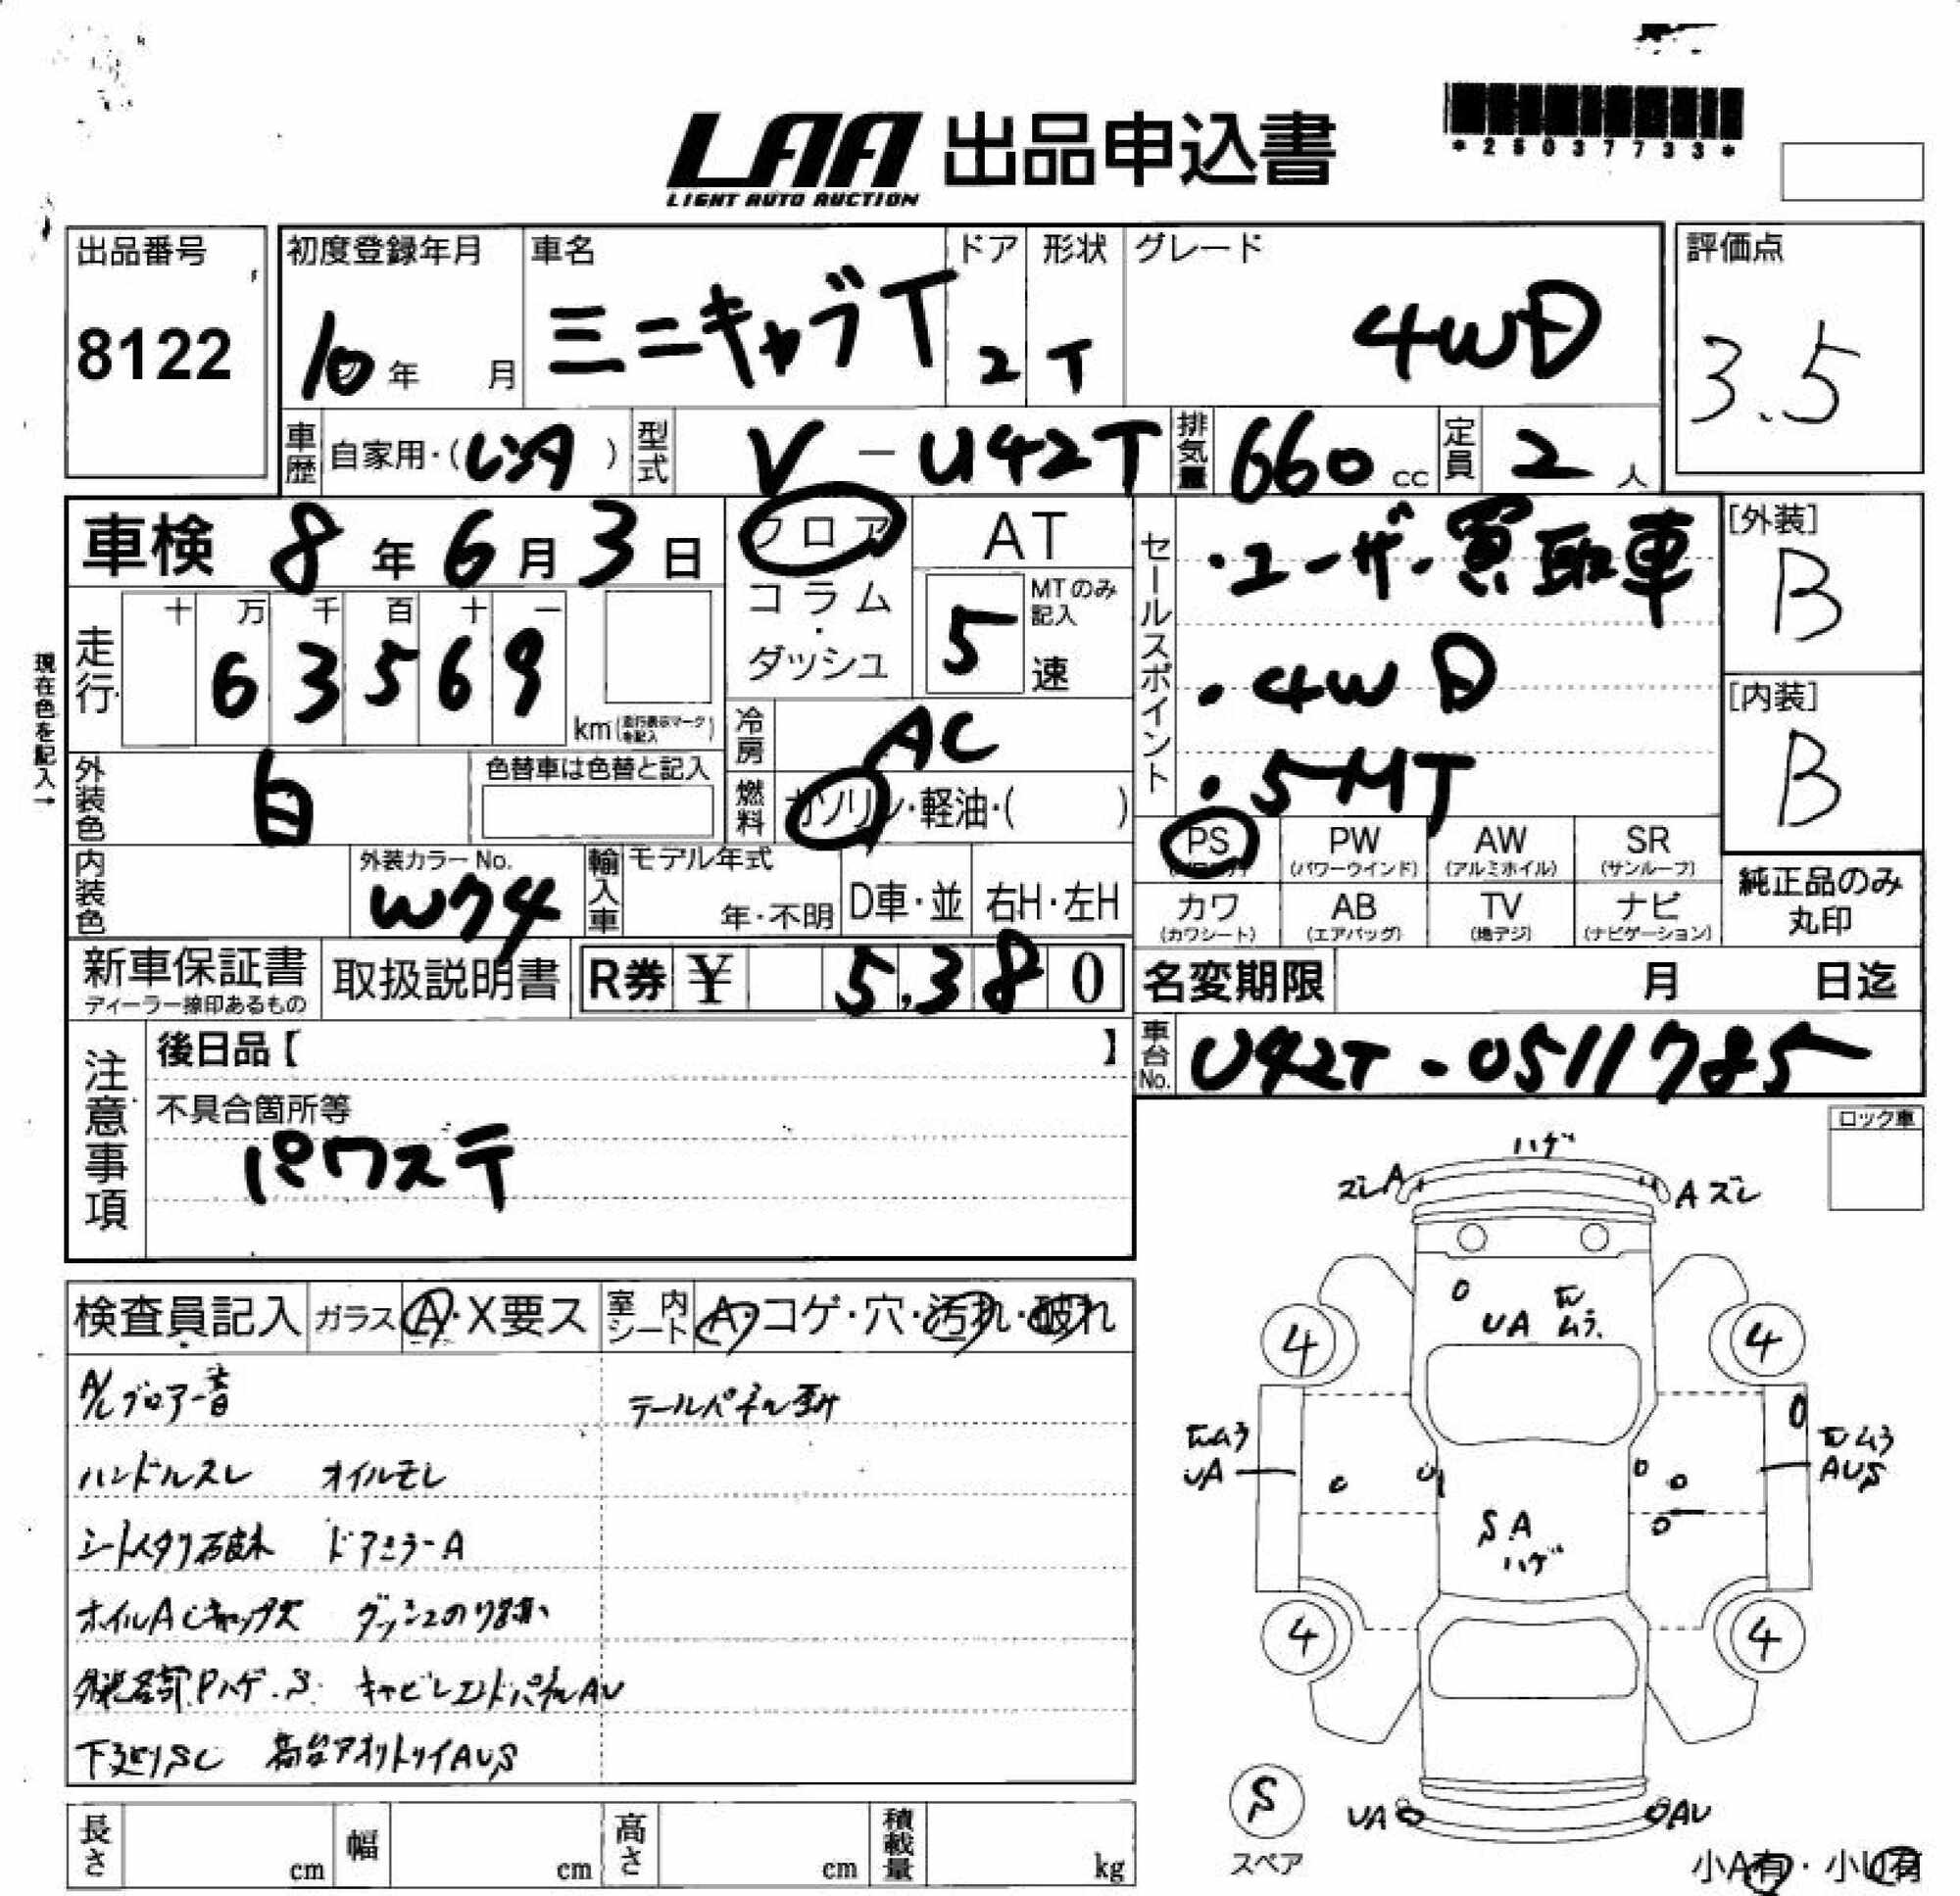 LAA 出品申込書
LIGHT AUTO AUCTION
*25037733*
出品番号
8122
初度登録年月
10年 月
車名
ミニキャブT
ドア
2
形状
T
グレード
4WD
評価点
3.5
車歴 自家用・(レンタ)
型式 V-U42T
排気量 660cc
定員 2人
車検 8年6月3日
フロア
コラム・ダッシュ
AT
MTのみ記入
5速
セールスポイント
・ユーザー買取車
・4WD
・5MT
[外装]
B
[内装]
B
現在色を記入→
走行 十 万 千 百 十 一
63569
km(走行表示マークを記入)
冷房 AC
燃料 ガソリン・軽油・( )
外装色 白
色替車は色替と記入
PS PW (パワーウインド) AW (アルミホイル) SR (サンルーフ)
カワ (カワシート) AB (エアバッグ) TV (地デジ) ナビ (ナビゲーション)
純正品のみ丸印
内装色
外装カラーNo.
W74
輸入車 モデル年式
年・不明
D車・並
右H・左H
新車保証書
ディーラー捺印あるもの
取扱説明書
R券 ¥ 5,380
名変期限 月 日迄
車台No. U42T-0511785
注意事項
後日品【 】
不具合箇所等
パワステ
ロック車
検査員記入 ガラス A・X要ス 室内シート A・コゲ・穴・汚れ・破れ
A/Cブロアー音
テールパネル歪み
ハンドルスレ オイルモレ
ドアミラーA
下廻りSC
ハゲ
ズレA
Aズレ
UA
ムラ
4
4
ムラ
UA
ムラ
AUS
SA
ハゲ
4
4
S
スペア
UA
AU
小A有・小U有
長さ cm 幅 cm 高さ cm 積載量 kg